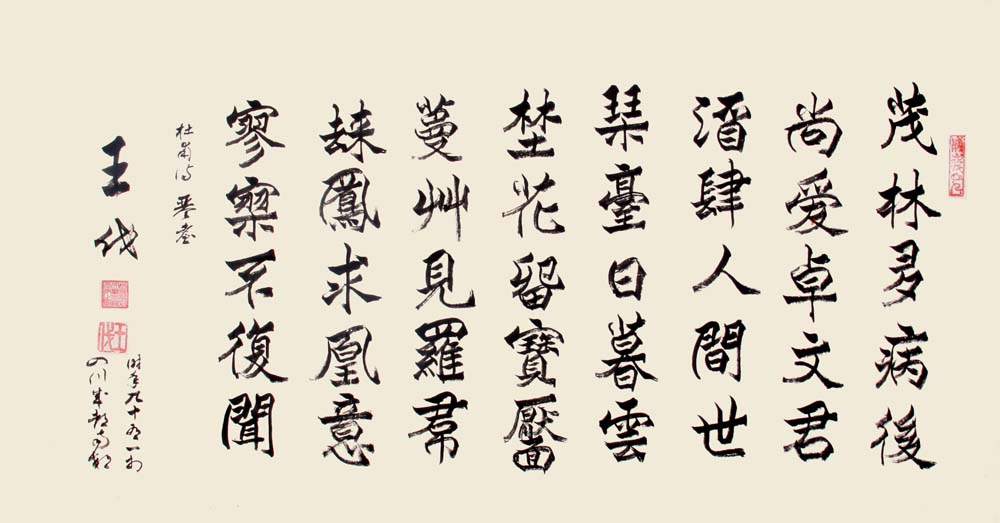 茂林多病後
尚愛卓文君
酒肆人間世
琴臺日暮雲
埜花留寶靨
蔓艸見羅帬
歸鳳求凰意
寥寥不復聞
杜甫詩 琴臺
王伐
時年九十有一於
四川成都南郊